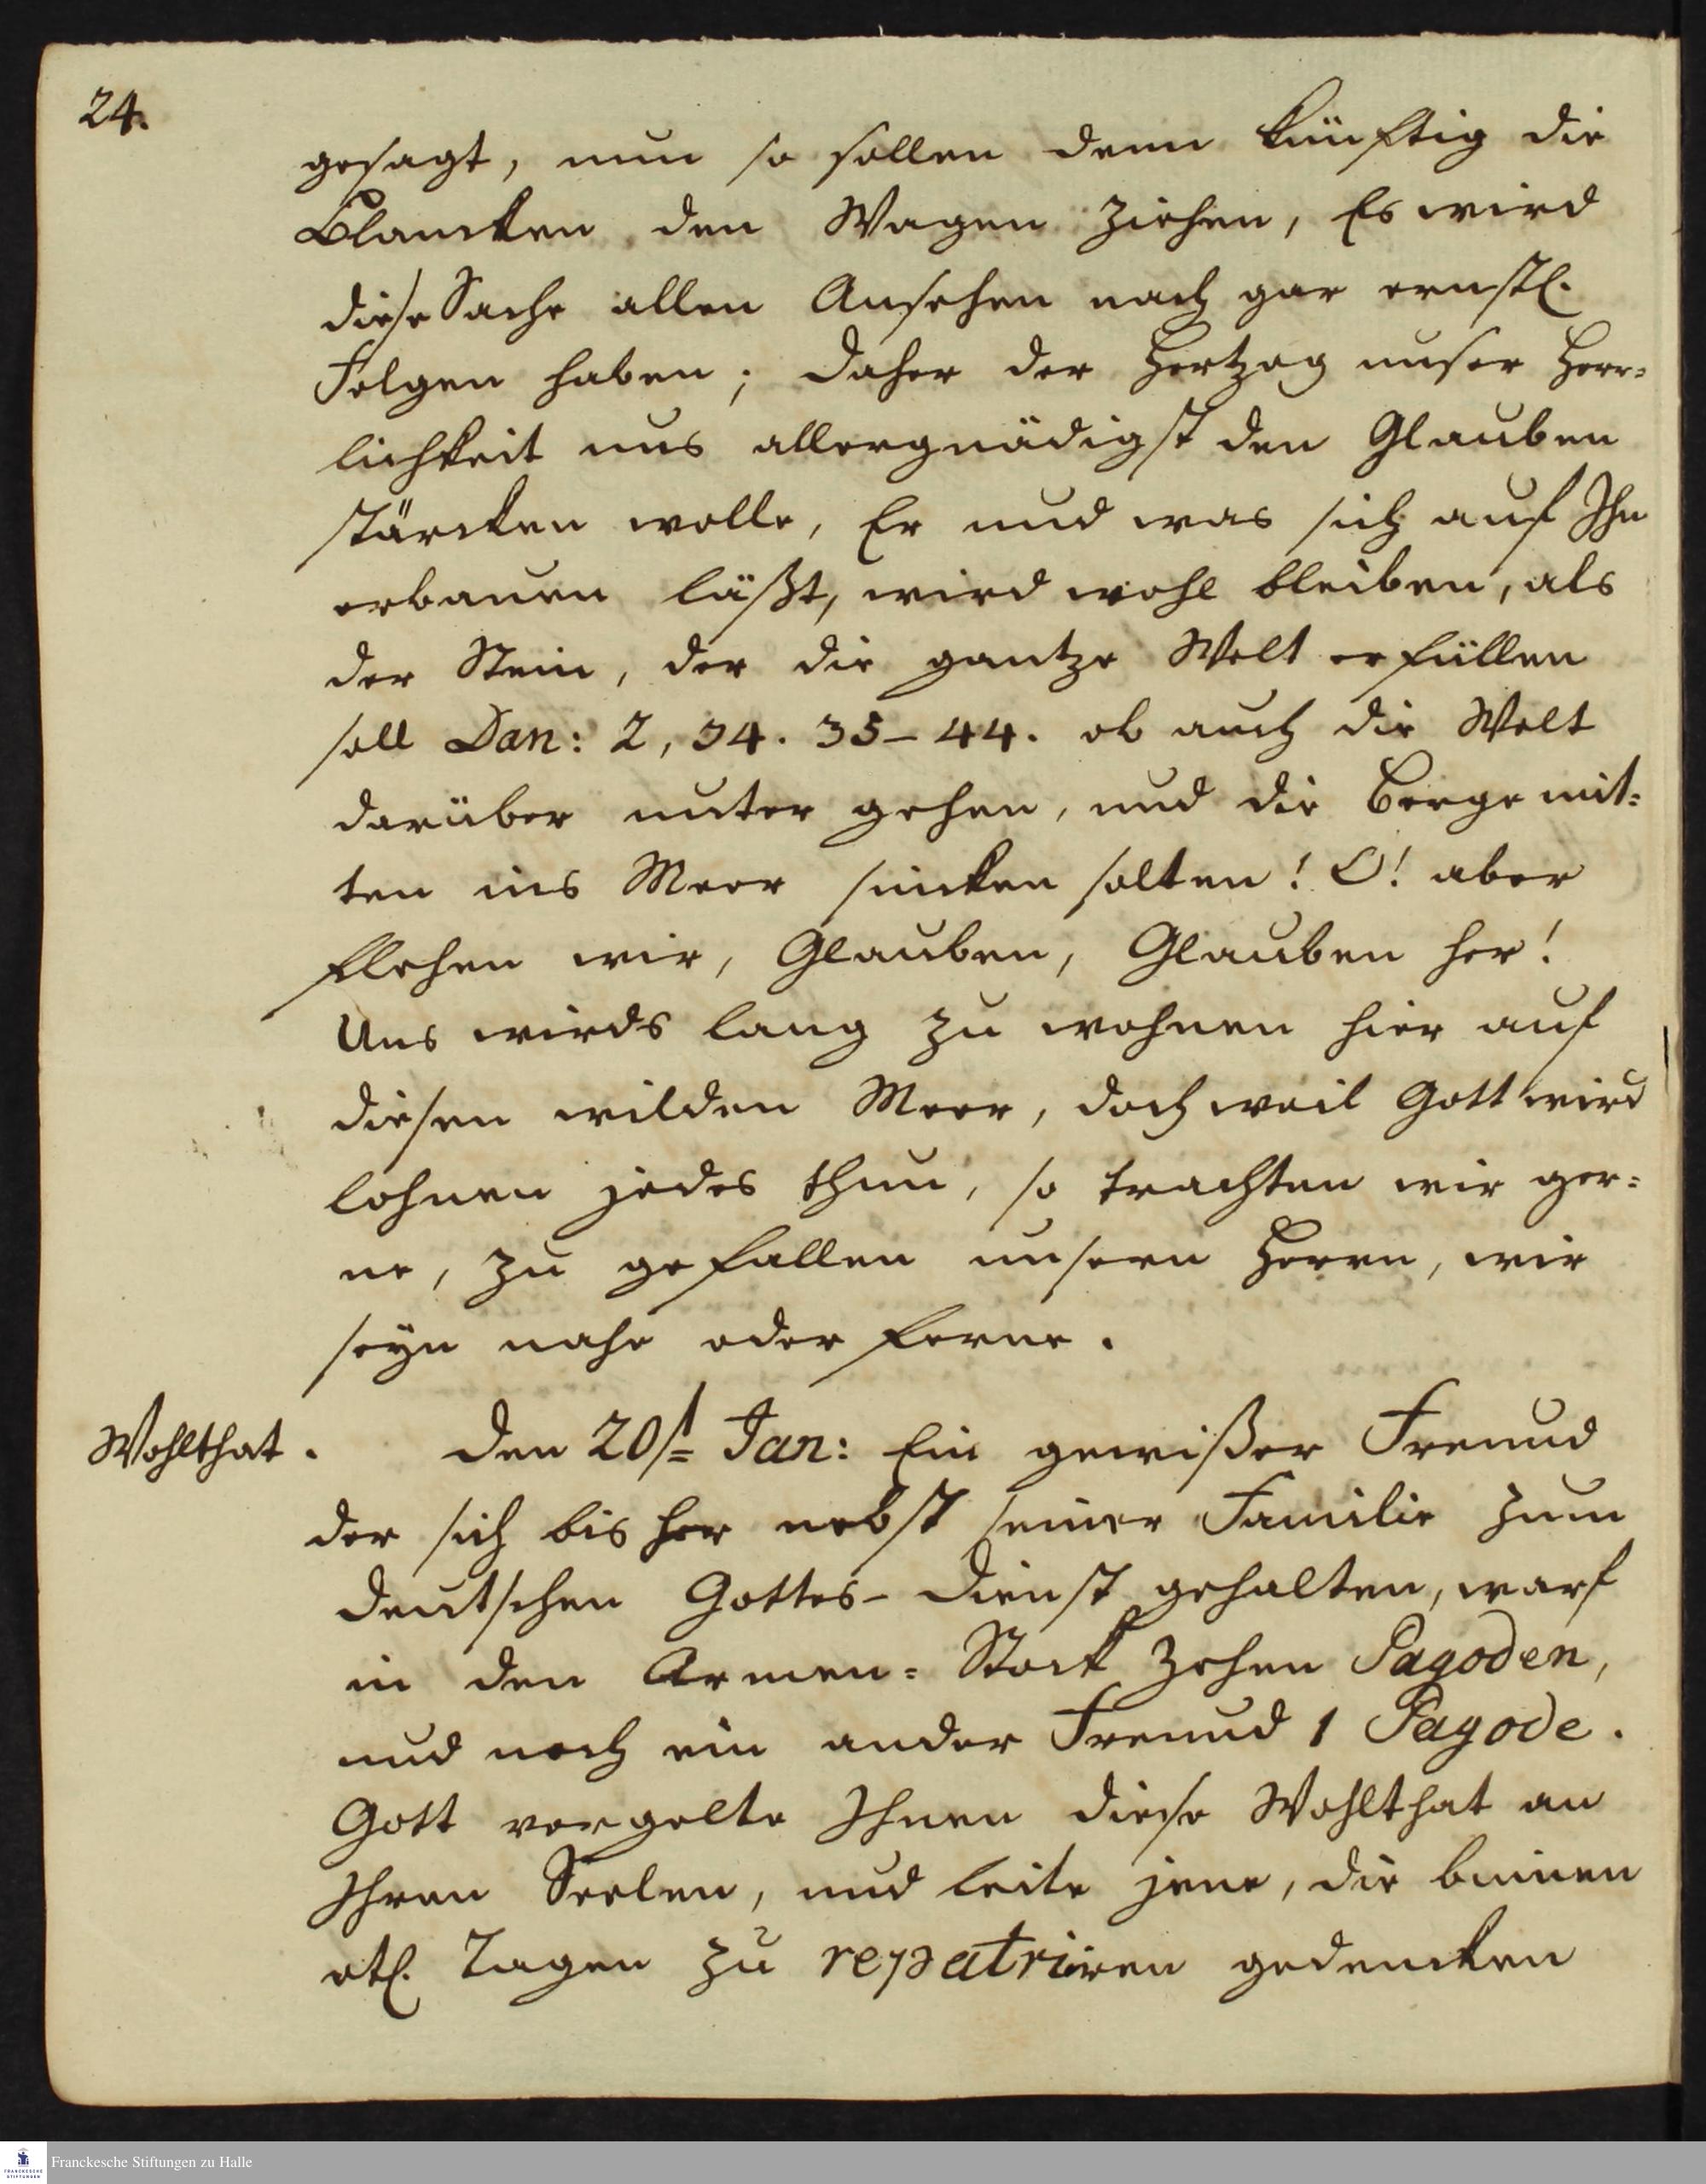 24.
gesagt, nun so sollen denn künftig die
Blancken den Wagen ziehen, Es wird
diese Sache allen Ansehen nach gar ernstl.
Folgen haben; daher der Hertzog unser Herr=
lichkeit uns allergnädigst den Glauben
stärcken wolle, Er und was sich auf Ihn
erbauen läßt, wird wohl bleiben, als
der Stein, der die gantze Welt erfüllen
soll Dan: 2, 34. 35–44. ob auch die Welt
darüber unter gehen, und die Berge mit=
ten ins Meer sincken solten! O! aber
flehen wir, Glauben, Glauben her!
Uns wirds lang zu wohnen hier auf
diesen wilden Meer, doch weil Gott wird
lohnen jedes thun, so trachten wir ger=
ne, zu gefallen unsern Herrn, wir
seyn nahe oder ferne.
Wohlthat. den 20st= Jan: Ein gewißer Freund
der sich bis her nebst seiner Familie zum
deutschen Gottes-dienst gehalten, warf
in den Armen=Stock zehen Pagoden,
und noch ein ander Freund 1 Pagode.
Gott vergelte Ihnen diese Wohlthat an
Ihren Seelen, und leite jene, die binnen
etl. Tagen zu repatriiren gedencken
Franckesche Stiftungen zu Halle
FRANCKESCHE
STIFTUNGEN